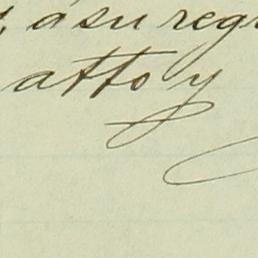 á su regr
atto y